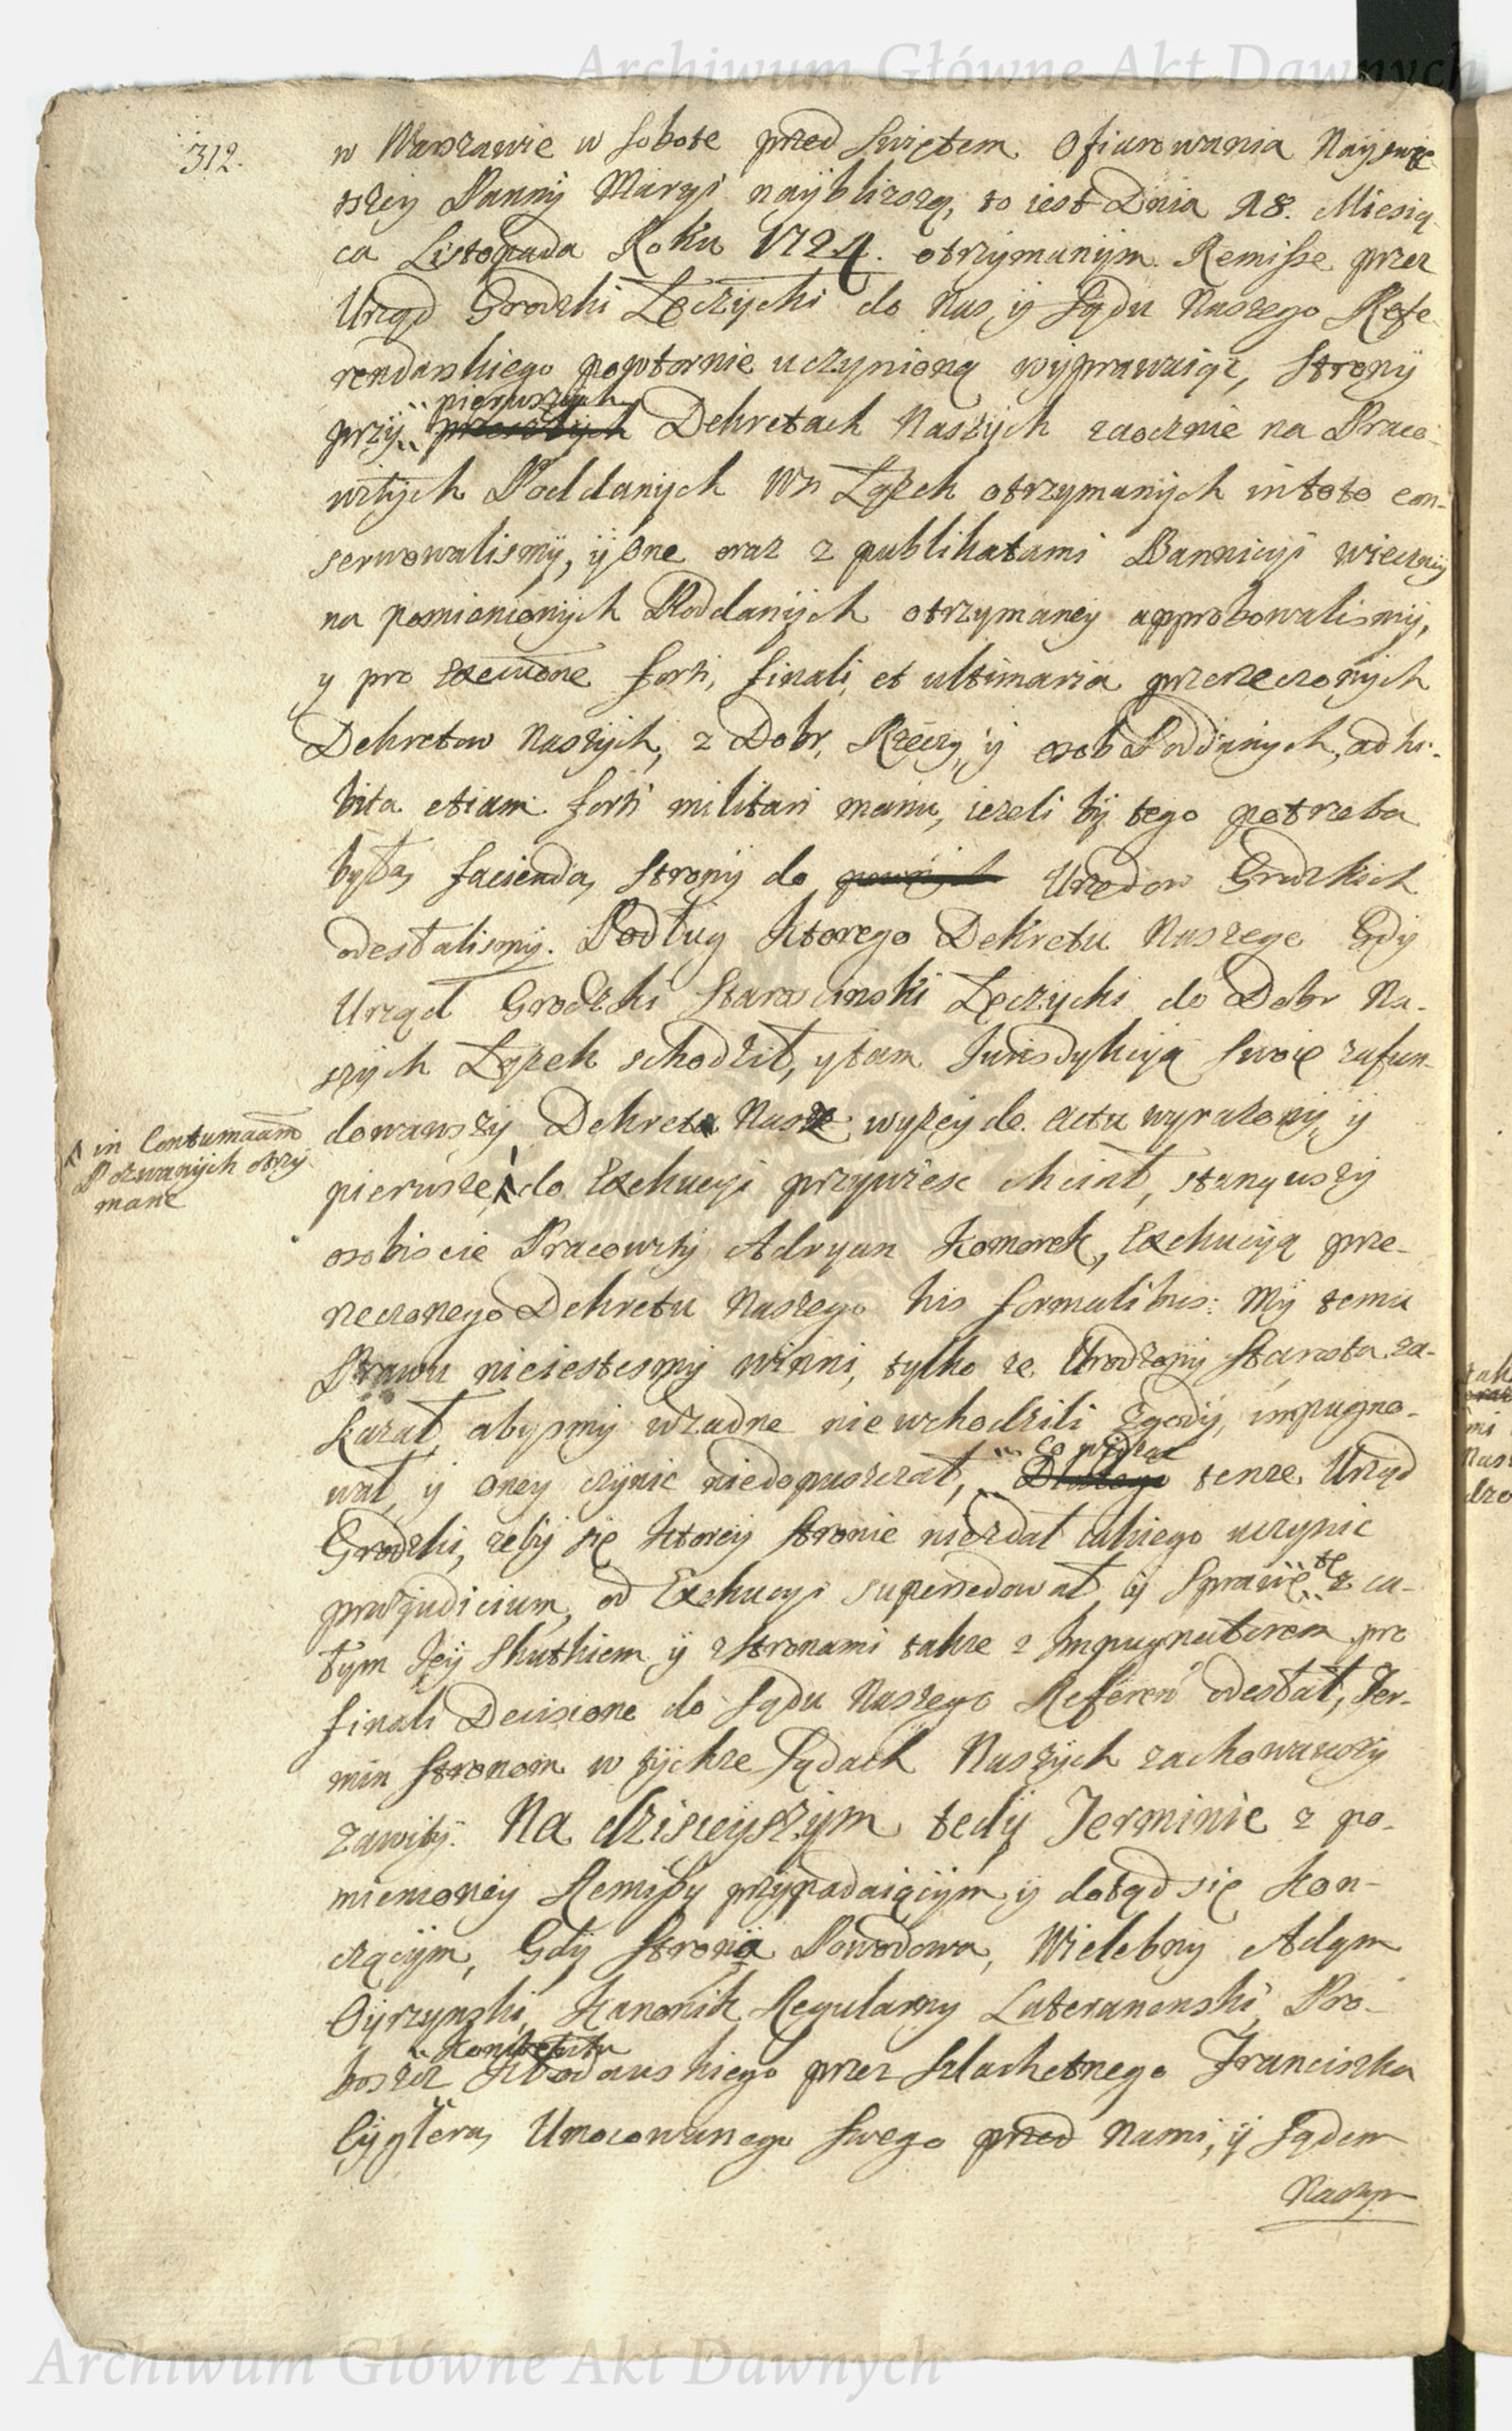 Archiwum Główne Akt Dawnych
312.
w Warszawie w Sobotę przed Swiętem Ofiarowania Nayswię
tszey Panny Maryi naybliższą, to iest Dnia 18. Miesią
ca Listopada Roku 1724. otrzymanym. Remissę przez
Urząd Grodzki Łęczycki do Nas, y Sądu Naszego Refe-
rendarskiego powtornie uczynioną wyprawuiąc, Strony
pierwszych
przy przeszłych Dekretach Naszych zaocznie na Praco-
witych Poddanych Wsi Łęzek otrzymanych in toto con-
serwowalismy, y One oraz z publikatami Bannicyi wieczney
na pomienionych Poddanych otrzymaney approbowalismy,
y pro Execuõne forti, finali, et ultimaria przerzeczonych
Dekretow Naszych, z Dobr, Rzeczy, y osob Poddanych, adhi-
bita etiam forti militari manu, iezeli by tego potrzeba
była, facienda, Strony do Urzędow Grodzkich
odesłalismy. Podług ktorego Dekretu Naszego Gdy
Urząd Grodzki Staroscinski Łęczycki do Dobr Na-
szych Łęzek schodził, y tam Jurisdykcyą swoię zafun-
dowawszy, Dekreta Nasze wyzey de actu wyrażony, y
pierwsze, do Exekucyi przywiesc chciał, stanąwszy
in Contumaciam
Pozwanych otrzy
mane
osobiscie Pracowity Adryan Komorek, Exekucyą prze-
rzeczonego Dekretu Naszego his formalibus: My temu
Prawu nieiestesmy winni, tylko ze Urodzony Starosta za-
kazał, abysmy wżadne niewchodzili Zgody, impugno-
Co widząc
wał, y oney czynic niedopuszczał, Dlatego tenze Urząd
Grodzki, zeby się ktorey Stronie niezdał iakiego uczynic
praejudicium, od Exekucyi supersedował, y Sprawę tę z ca-
łym Jey Skutkiem y z Stronami takze z Impugnatorem pro
finali Decisione do Sądu Naszego Referen odesłał, Ter-
min Stronom w tychze Sądach Naszych zachowawszy
zawity. Na dzisieyszym tedy Terminie z po-
mienioney Remissy przypadaiącym y dotąd się kon-
czącym, Gdy Strona Powodowa, Wielebny Adam
Oyrzynski, Kanonik Regularny Lateranenski, Pro-
Konwentu
boszcz Kłodawskiego przez Szlachetnego Franciszka
Cyglera, Umocowanego Swego przed Nami, y Sądem
Naszym
Archiwum Główne Akt Dawnych